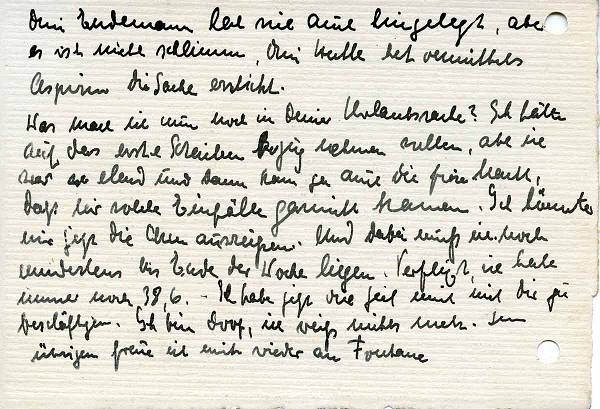 Dein Endemann hat sie aufe hingelegt, aber
es ist nicht schlimm, Dein hat vermittels
Aspirin die Sache erstickt.
Was mach ich nun noch in Deiner Urlaubssache? Ich hätte
auf das erste Schreiben bezug nehmen sollen, aber ich
war so elend und dann kam ja auch die freie
Daß mir solche Einfälle garnicht kamen. Ich könnte
mir jetzt die Ohren ausreißen. Und dabei muß ich noch
mindestens bis Ende der Woche liegen. Verflixt, ich habe
immer noch 38,6. - Ich habe jetzt viel Zeit mich mit Dir zu
beschäftigen. Ich bin doof, ich weiß nichts mehr. Im
übrigen freue ich mich wieder an Fontane